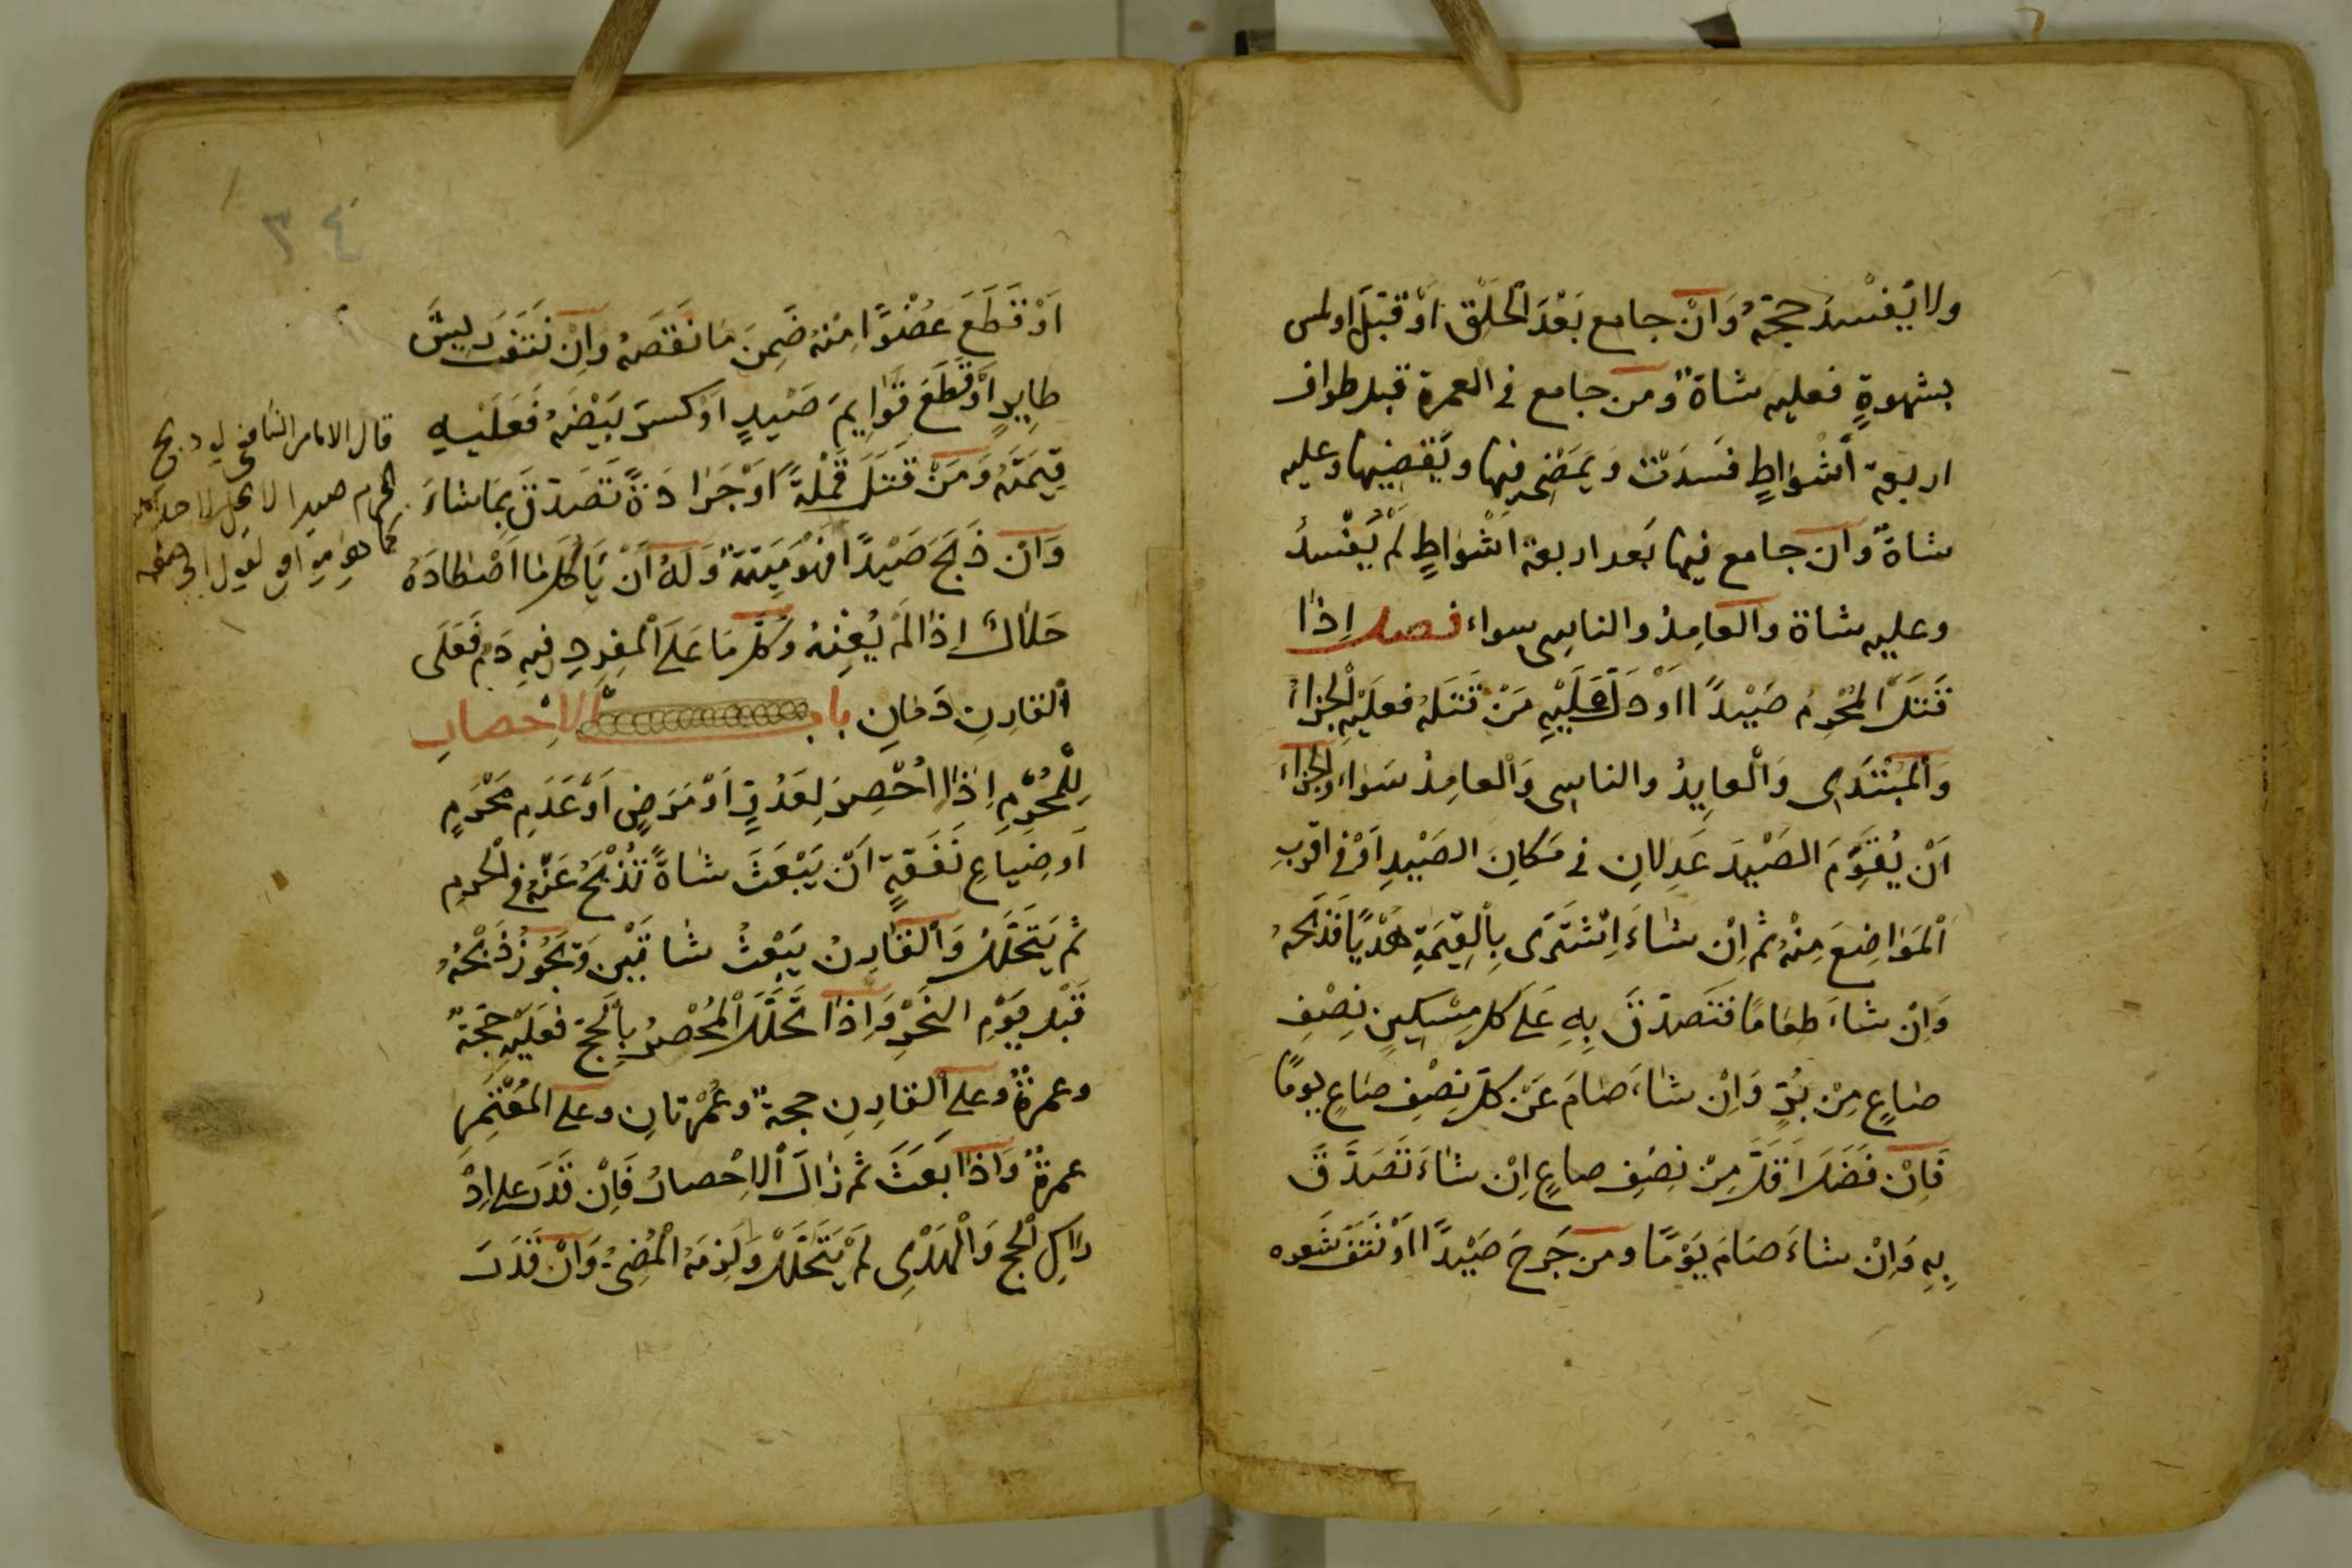 ولا يُفْسدُ حجتهُ وَانْ جامع بَعْدَ الْحَلْقِ اوْ قَبَّلَ اولمس
بشهوةٍ فعليه شاةٌ ومن جامع فى العمرة قبل طواف
اربعة اَشْوَاطٍ فسَدَتْ وَيَمضى فيها ويَقضِيها وعليه
شاةٌ وَان جامع فيها بَعد اربعة اشْوَاطٍ لَمْ يَفْسدُ
وعليه شاة والعامِدُ والناسِى سواء فصل اِذَا
قَتَلَ الْمُحْرِمُ صَيْداً ااوْ دَلَّ عَلَيْهِ مَنْ قَتَلَهُ فعلَيْهِ الْجَزاءُ
وَالْمُبْتَدِى وَالْعايِدُ والناسِى وَالْعامِدُ سَوَاء وَالْجَزاءُ
اَنْ يُقَوِّمَ الصَيْدَ عَدِلانِ فى مَكانِ الصَيْدِ اَوْ فى اقرَبِ
الْمَوَاضِعَ مِنْهُ ثم اِنْ شاءَ اِشْتَرَى بِالْقِيمَةِ هَدْيًا فَذَبَحَهُ
وَاِنْ شاءَ طعَامًا فَتَصَدَّقَ بِهِ عَلَى كل مِسْكِينٍ نِصْفِ
صَاعٍ مِنْ بُرٍّ وَاِنْ شاءَ صَامَ عَنْ كلّ نِصْفِ صَاعٍ يومًا
فَاِنْ فَضَلَ اَقَلَّ مِنْ نِصْفِ صاعٍ اِنْ شاءَ تَصَدَّقَ
بِهِ وَاِنْ شاءَ صَامَ يَوْمًا ومن جَرحَ صَيْداً ااَوْ نَتَفَ شَعره
٣٤
اَوْ قَطَعَ عُضْوًا مِنْهُ ضَمِنَ مَا نَقَصَهُ وَاِنْ نَتَفَ رِيشَ
طايِرٍ اَوْ قَطَعَ قَوَايِمَ صَيْدٍ اَوْ كسرَ بَيْضَهُ فَعَلَيْهِ
قِيمَتَهُ وَمَنْ قَتَلَ قَمْلَةً اَوْ جَرَادَةً تَصَدَّقَ بِمَا شاءَ
وَانْ ذَبَحَ صَيْدًا فَهُوَ مَيْتَةٌ وَلَهُ اَنْ يَاكُلَ مَا اصْطَادَهُ
حَلَالٌ اِذَا لَمْ يُعِنْهُ وَكُلّ مَا عَلَى الْمُفرِدِ فِيهِ دَمٌ فَعَلَى
الْقارِنِ دَمَانِ باب الاِحْصارِ
لِلْمُحْرِمِ اِذَا اُحْصِرَ لِعَدُوٍّ اَوْ مَرَضٍ اَوْ عَدَمِ مَحْرَمٍ
اَو ضِيَاعِ نَفَقَةٍ اَنْ يَبْعَثَ شاةً تُذْبَحُ عَنْهُ فى الْحَرمِ
ثم يَتَحَلَّلُ وَالْقَارِنُ يَبْعَثُ شاتَيْنِ وَيَجُوزُ ذَبْحُهُ
قَبْلَ يَوْمِ النَحْرِ وَاِذَا تَحَلَّلَ الْمُحْصَرُ بِالْحَجِّ فعَلَيْهِ حَجَّةٌ
وعمرةٌ وعلى الْقارِنِ حجةٌ وعُمْرتانِ وعلى الْمُعْتَمِرِ
عمرةٌ وَاذَا بَعَثَ ثم زَالَ الاِحْصارُ فَاِنْ قَدَرَ على اِدْ
راكِ الْحج وَالْهَدْىِ لَمْ يَتَحَلَّلْ وَلَزِمَهُ الْمُضِىُّ وَاِنْ قَدَرَ
قال الامام الشافعى لو ذبح
المحرم صيدا لا يحل